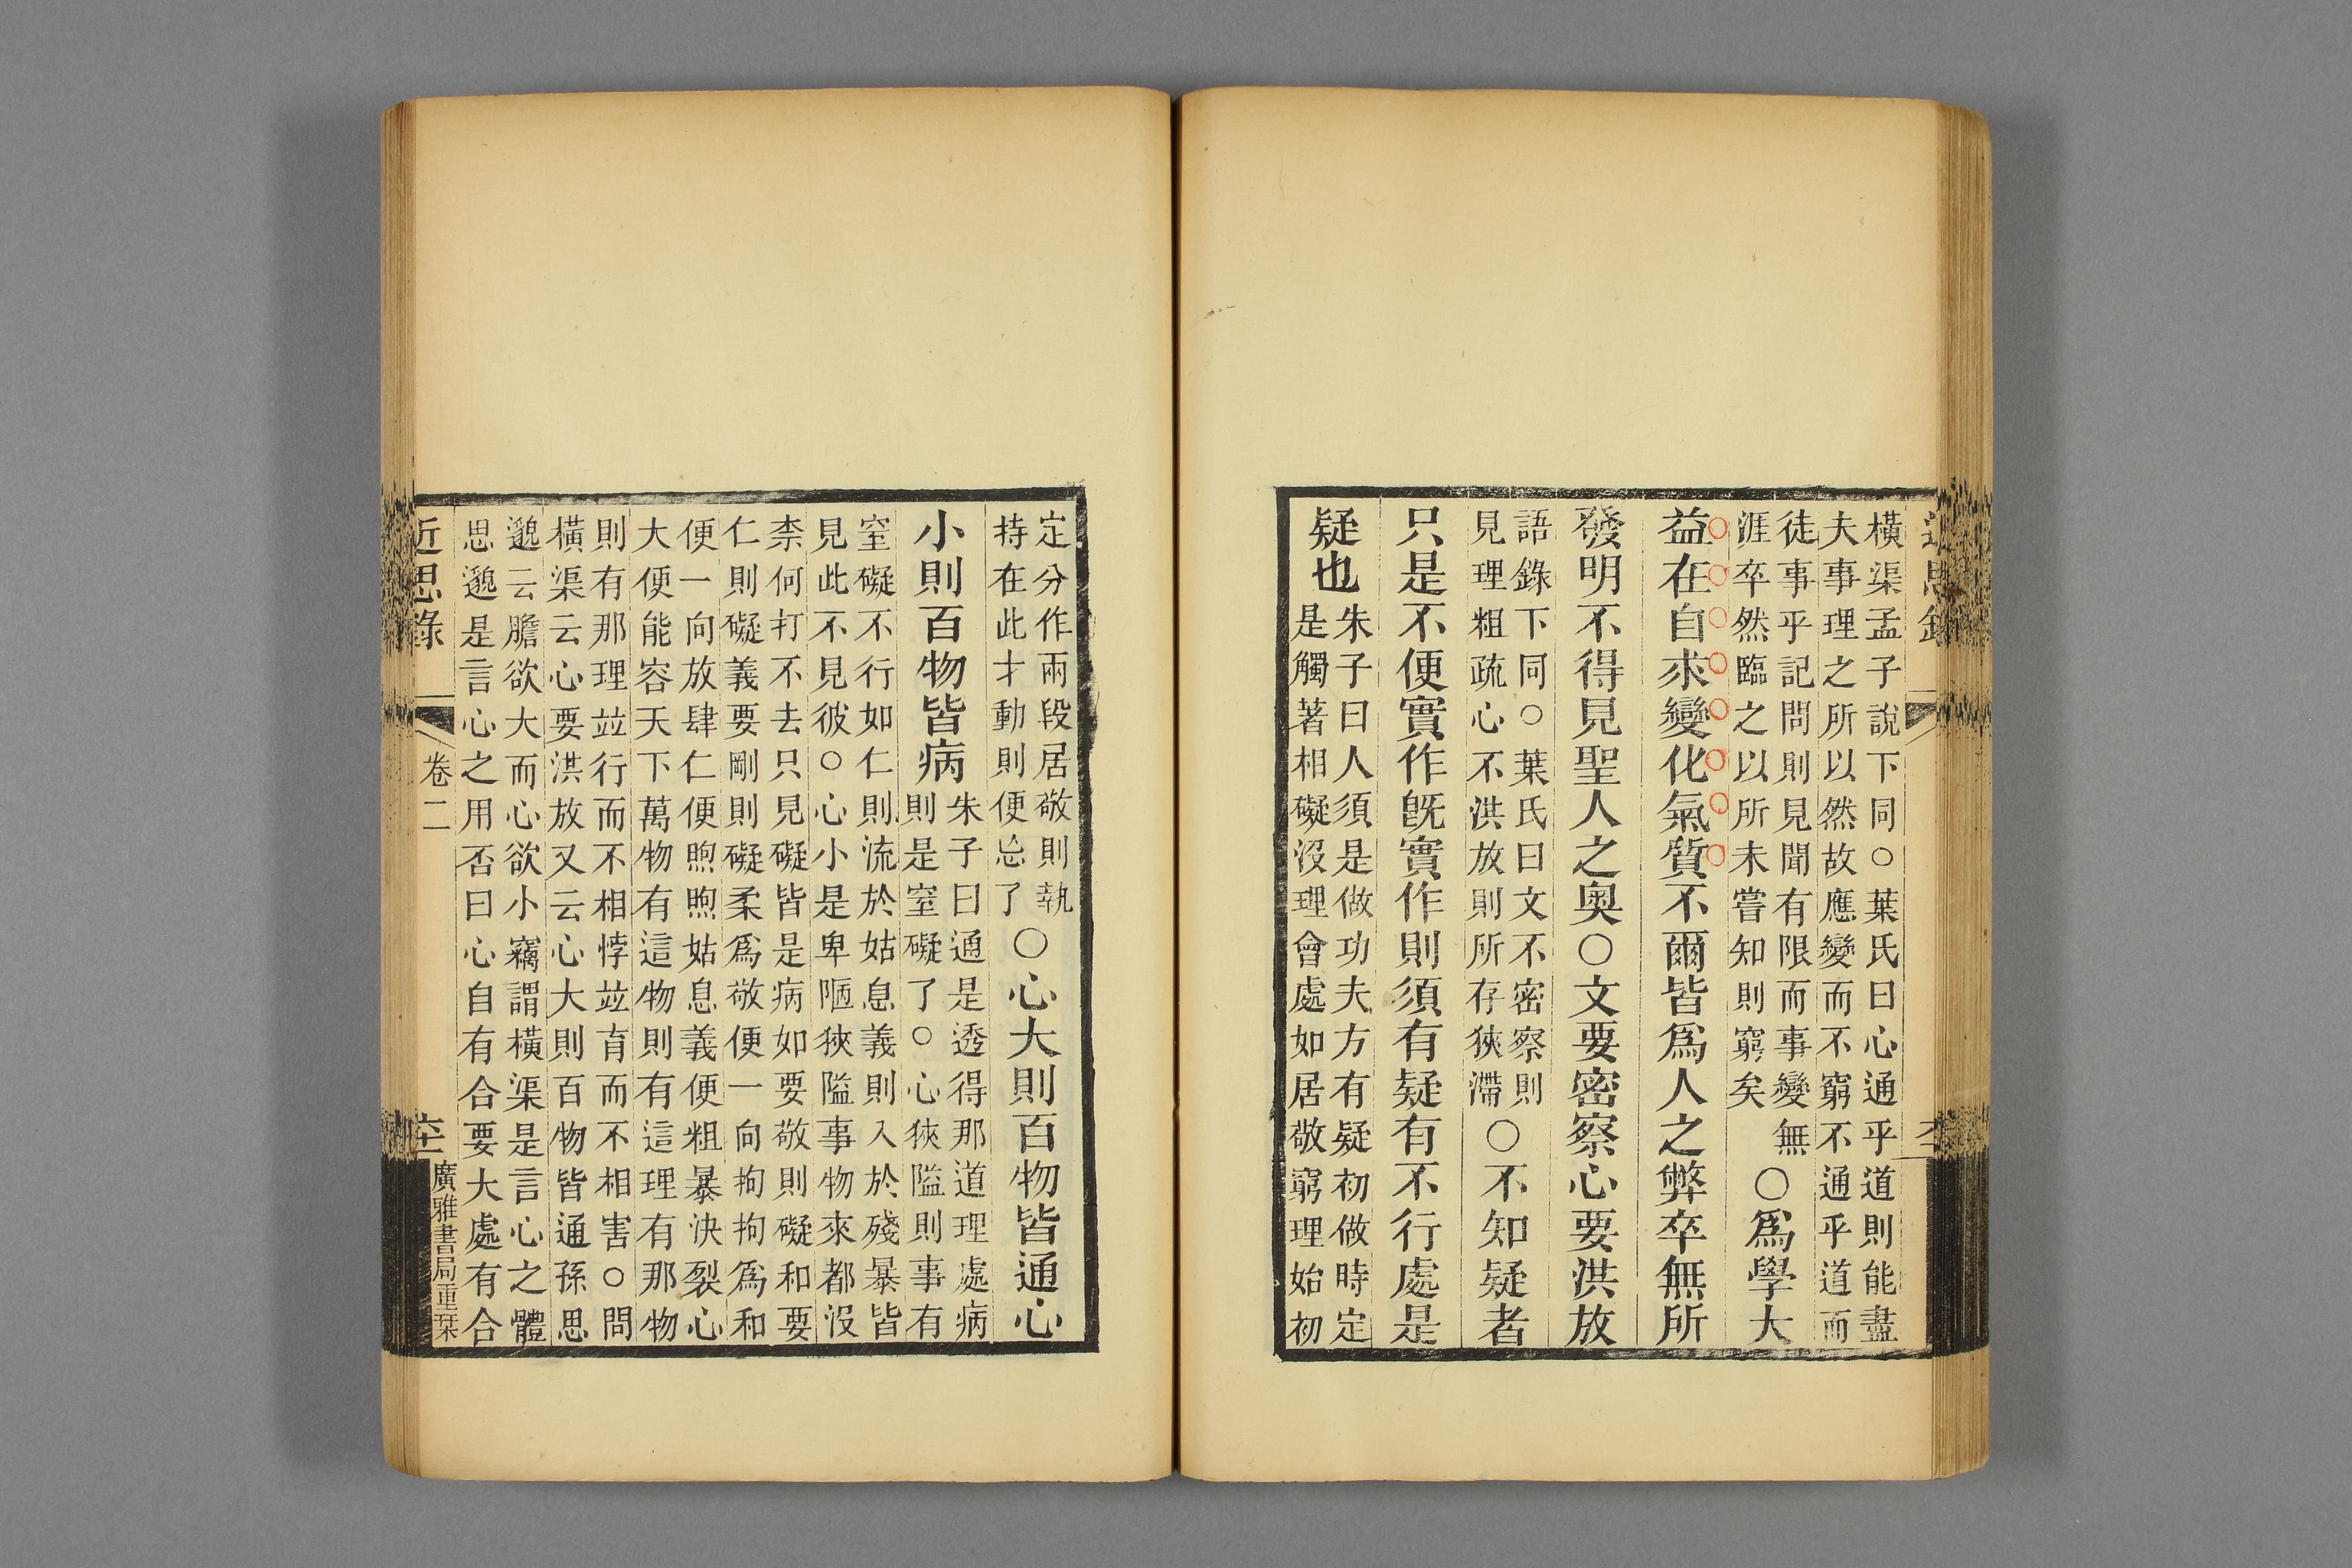 橫渠孟子說下同○葉氏曰心通乎道則能盡
夫事理之所以然故應變而不窮不通乎道而
徒事乎記問則見聞有限而事變無
涯卒然臨之以所未嘗知則窮矣
○爲學大
益在自求變化氣質不爾皆爲人之弊卒無所
發明不得見聖人之奧○文要密察心要洪放
語錄下同○葉氏曰文不密察則
見理粗疏心不洪放則所存狹滯
○不知疑者
只是不便實作旣實作則須有疑有不行處是
疑也
朱子曰人須是做功夫方有疑初做時定
是觸著相礙沒理會處如居敬窮理始初
定分作兩段居敬則執
持在此才動則便忘了
○心大則百物皆通心
小則百物皆病
朱子曰通是透得那道理處病
則是窒礙了○心狹隘則事有
窒礙不行如仁則流於姑息義則入於殘暴皆
見此不見彼○心小是卑陋狹隘事物來都沒
柰何打不去只見礙皆是病如要敬則礙和要
仁則礙義要剛則礙柔爲敬便一向拘拘爲和
便一向放肆仁便煦煦姑息義便粗暴決裂心
大便能容天下萬物有這物則有這理有那物
則有那理竝行而不相悖竝育而不相害○問
橫渠云心要洪放又云心大則百物皆通孫思
邈云膽欲大而心欲小竊謂橫渠是言心之體
思邈是言心之用否曰心自有合要大處有合
近思錄
卷二
廣雅書局重栞